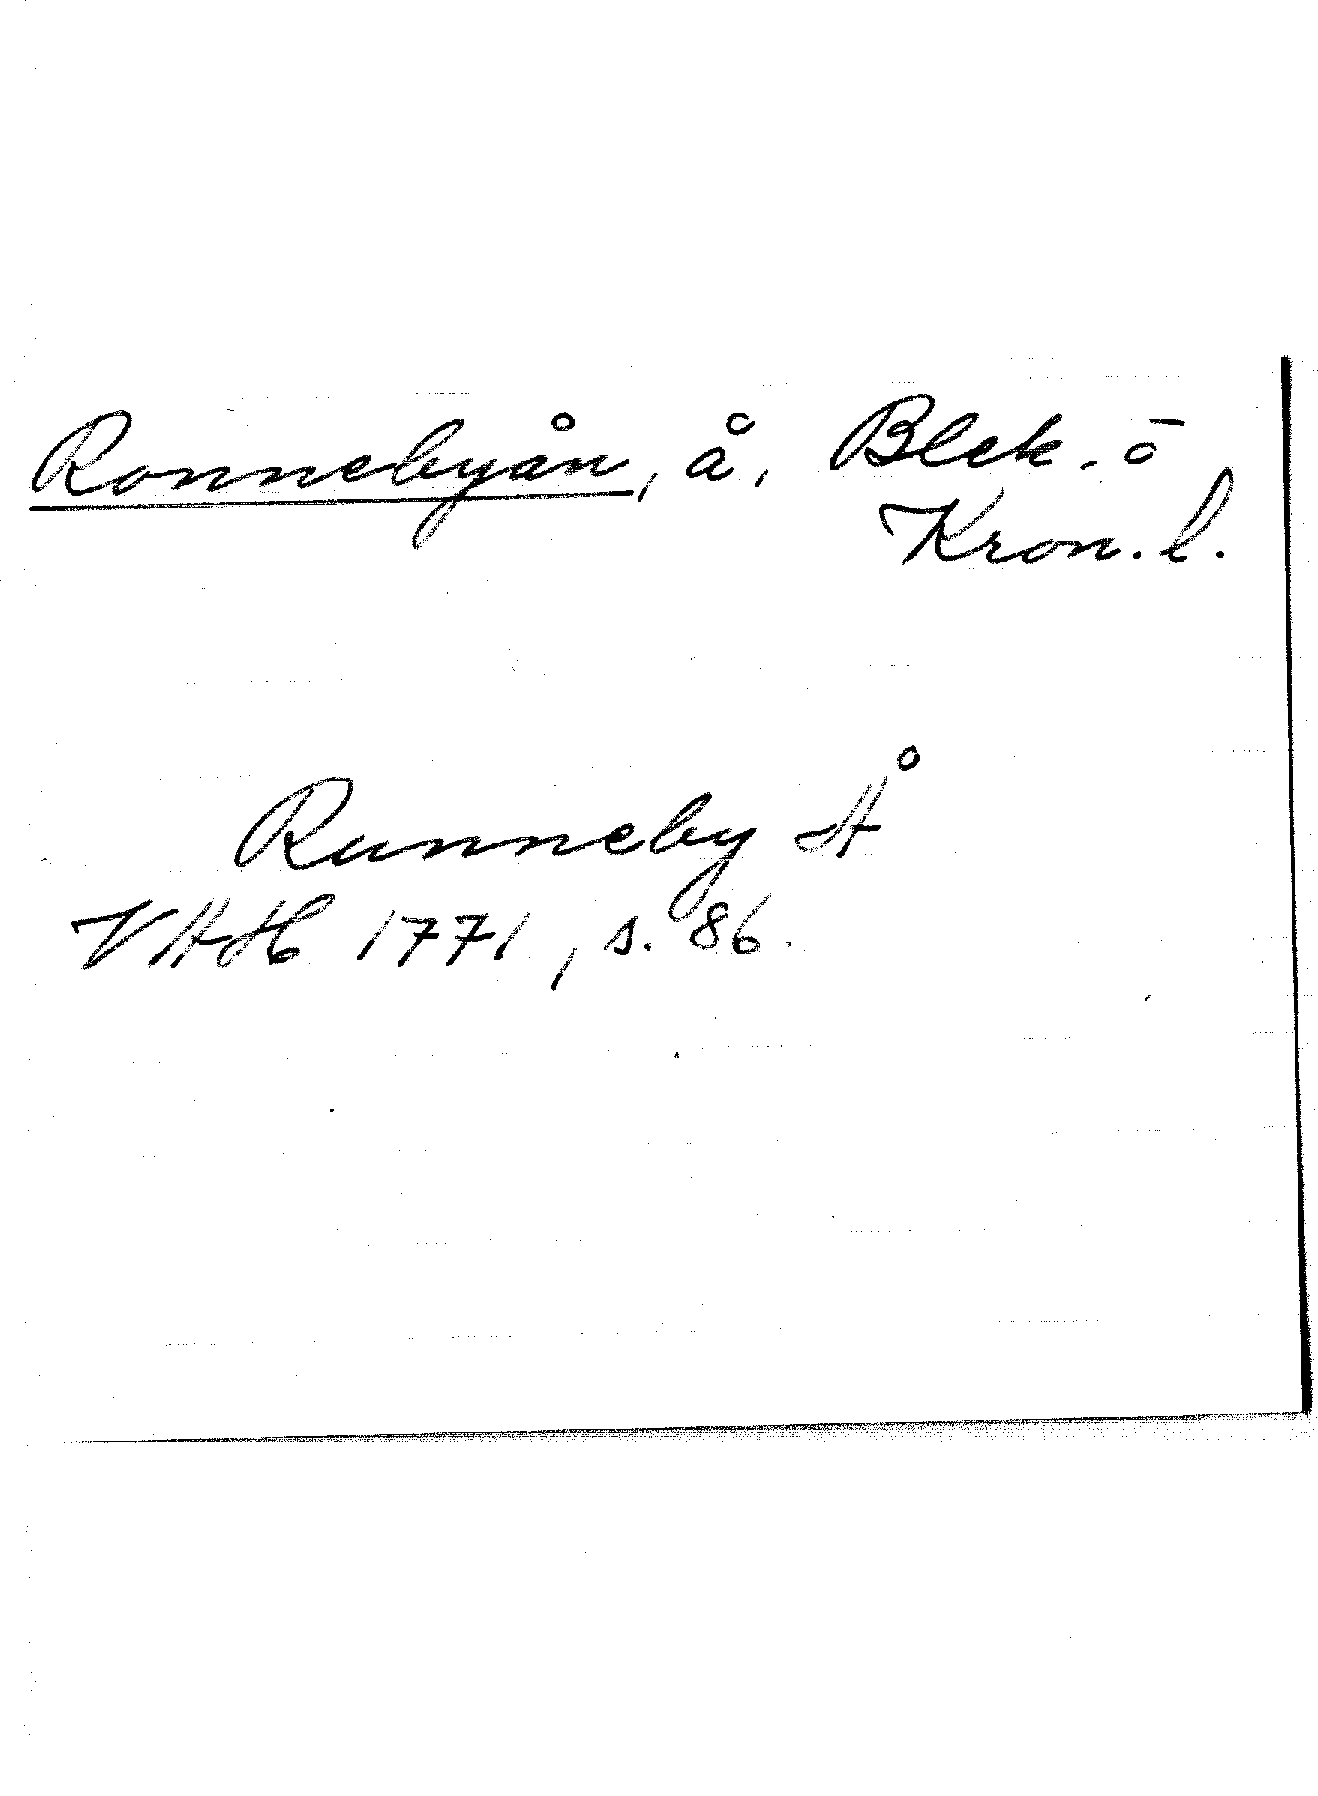 Ronnebyån, å, Blek. ō
Kron. l.
Runneby Å
VAH 1771, s. 86.